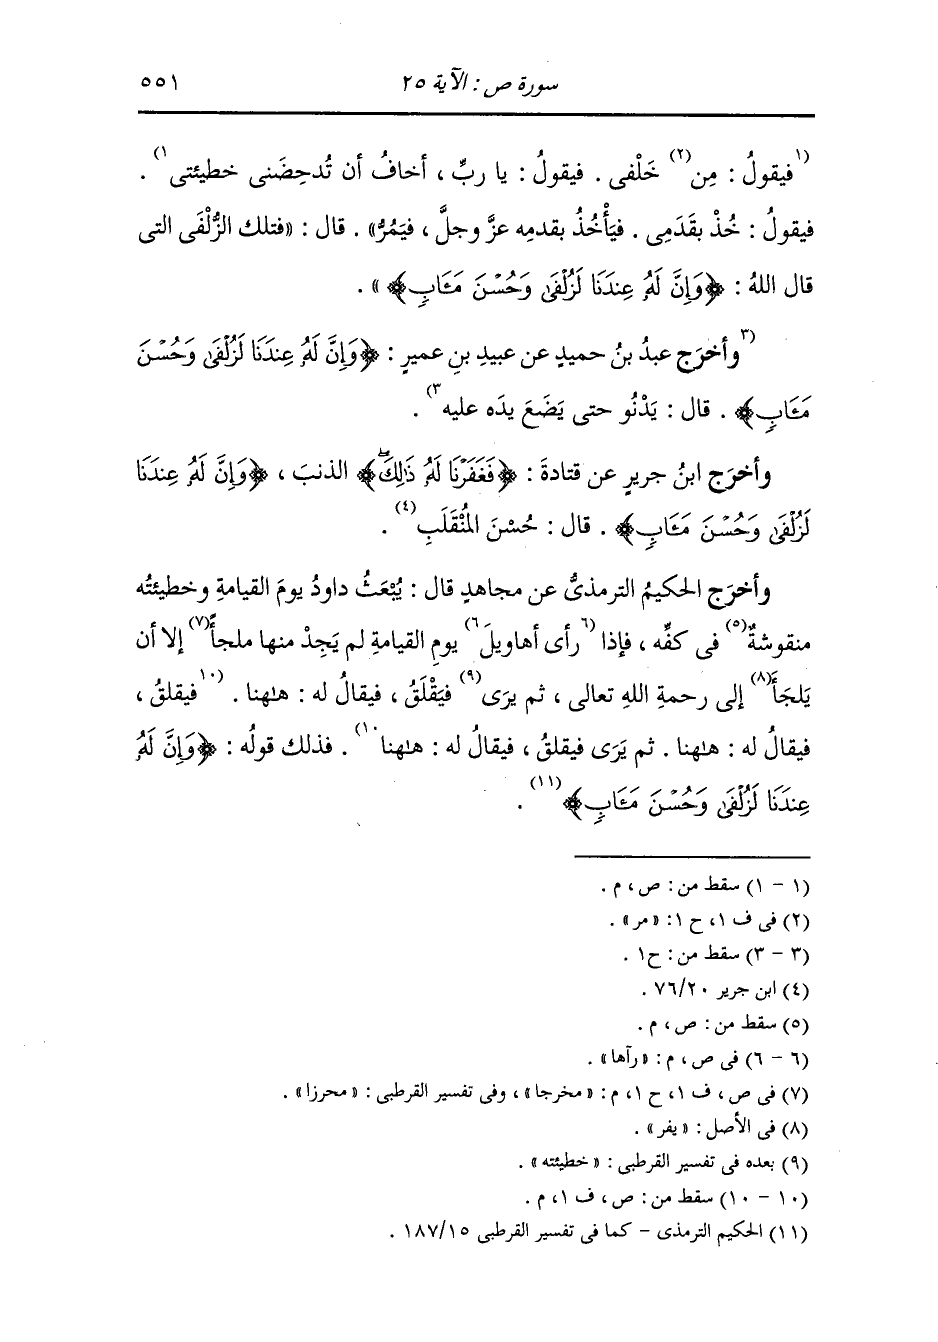 سورة ص : الآية ٢٥ ٥٥١
(١فيقولُ : مِن(٢) خَلْفى . فيقولُ : يا ربِّ ، أخافُ أن تُدحِضَنى خطيئتى١) .
فيقولُ : خُذْ بقَدَمِى . فيَأْخُذُ بقدمِه عزَّ وجلَّ ، فيَمُرُّ» . قال : «فتلك الزُّلْفَى التى
قال اللهُ : ﴿وَإِنَّ لَهُۥ عِندَنَا لَزُلْفَىٰ وَحُسْنَ مَـَٔابٍ﴾ » .
(٣وأخرَج عبدُ بنُ حميدٍ عن عبيدِ بنِ عميرٍ : ﴿وَإِنَّ لَهُۥ عِندَنَا لَزُلْفَىٰ وَحُسْنَ
مَـَٔابٍ﴾ . قال : يَدْنُو حتى يَضَعَ يدَه عليه٣) .
وأخرَج ابنُ جريرٍ عن قتادةَ : ﴿فَغَفَرْنَا لَهُۥ ذَٰلِكَۖ﴾ الذنبَ ، ﴿وَإِنَّ لَهُۥ عِندَنَا
لَزُلْفَىٰ وَحُسْنَ مَـَٔابٍ﴾ . قال : حُسْنَ المُنْقَلَبِ(٤) .
وأخرَج الحكيمُ الترمذىُّ عن مجاهدٍ قال : يُبْعَثُ داودُ يومَ القيامةِ وخطيئتُه
منقوشةٌ(٥) فى كفِّه ، فإذا (٦رأى أهاويلَ٦) يومِ القيامةِ لم يَجِدْ منها ملجأً(٧) إلا أن
يَلجَأَ(٨) إلى رحمةِ اللهِ تعالى ، ثم يرَى(٩) فيَقْلَقُ ، فيقالُ له : هٰهنا . (١٠فيقلقُ ،
فيقالُ له : هٰهنا . ثم يَرَى فيقلقُ ، فيقالُ له : هٰهنا١٠) . فذلك قولُه : ﴿وَإِنَّ لَهُۥ
عِندَنَا لَزُلْفَىٰ وَحُسْنَ مَـَٔابٍ﴾(١١) .
(١ - ١) سقط من : ص ، م .
(٢) فى ف ١، ح ١: «مر» .
(٣ - ٣) سقط من : ح١ .
(٤) ابن جرير ٧٦/٢٠ .
(٥) سقط من : ص ، م .
(٦ - ٦) فى ص ، م : «رآها» .
(٧) فى ص ، ف ١، ح ١، م : «مخرجا» ، وفى تفسير القرطبى : «محرزا» .
(٨) فى الأصل : «يفر» .
(٩) بعده فى تفسير القرطبى : «خطيئته» .
(١٠ - ١٠) سقط من : ص ، ف ١، م .
(١١) الحكيم الترمذى - كما فى تفسير القرطبى ١٨٧/١٥ .